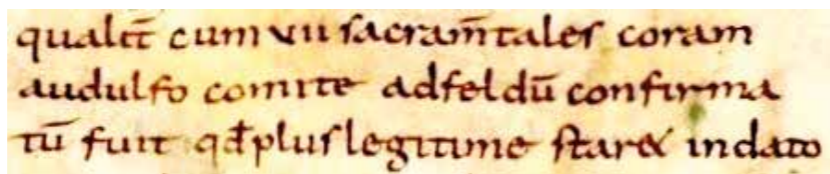 qualit̄ cum vii sacram̄tales coram
audulfo comite adfeldū confirma
tū fuit qđ plus legitime staret indato